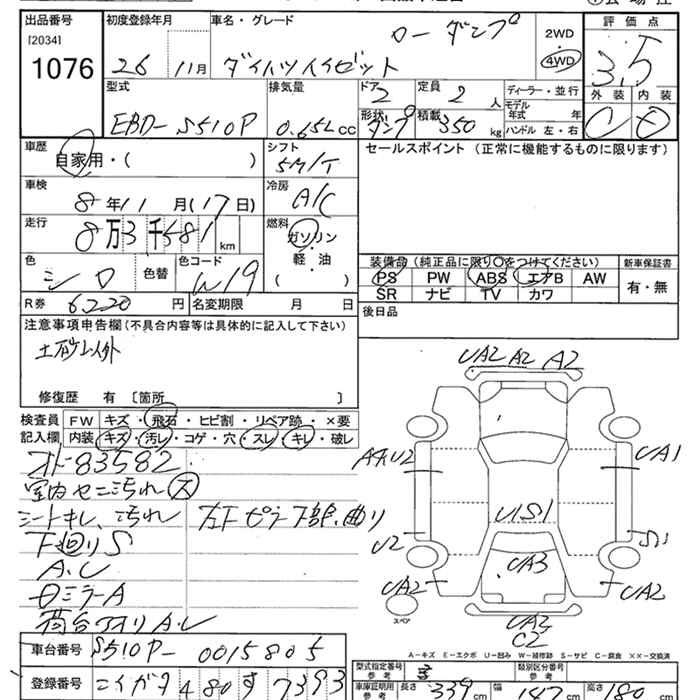 出品番号 初度登録年月 車名・グレード 評価点
[2034] 1076 26 11月 ダイハツハイゼット ローダンプ 2WD 4WD 3.5
型式 排気量 ドア 2 定員 2 人 ディーラー・並行 外装 内装
EBD-S510P 0.65L CC 形状 ダンプ 積載 350 kg モデル年式 年 ハンドル 左・右 C
車歴 自家用・( ) シフト 5M/T セールスポイント (正常に機能するものに限ります)
車検 8年11月(17日) 冷房 A/C
走行 8万3千581km 燃料 ガソリン・軽油 ( )
装備品(純正品に限り〇をつけてください) 新車保証書
色 シロ 色替 色コード W19 PS PW ABS エアB AW 有・無
R券 6220円 名変期限 月 日 SR ナビ TV カワ
注意事項申告欄(不具合内容等は具体的に記入して下さい) 後日品
土砂以外
修復歴 有 〔箇所 〕
検査員 FW キズ・飛石・ヒビ割・リペア跡・×要
記入欄 内装 キズ・汚レ・コゲ・穴・スレ・キレ・破レ
オドー83582
シートキレ、汚れ 左下ピラー下部、曲り
下回りS
A.U
Dミラー A
荷台 A.U
UA2 A2 A2
UA1
U2
U1S1
S1
UA3
UA2 UA2
スペア
UA2
C2
A-キズ E-エクボ U-凹み W-補修跡 S-サビ C-腐食 XX-交換済
車台番号 S510P-0015805 型式指定番号 参考 類別区分番号 参考
登録番号 ニイガタ 480 す 7393 車庫証明用 参考 長さ 339 cm 幅 147 cm 高さ 180 cm